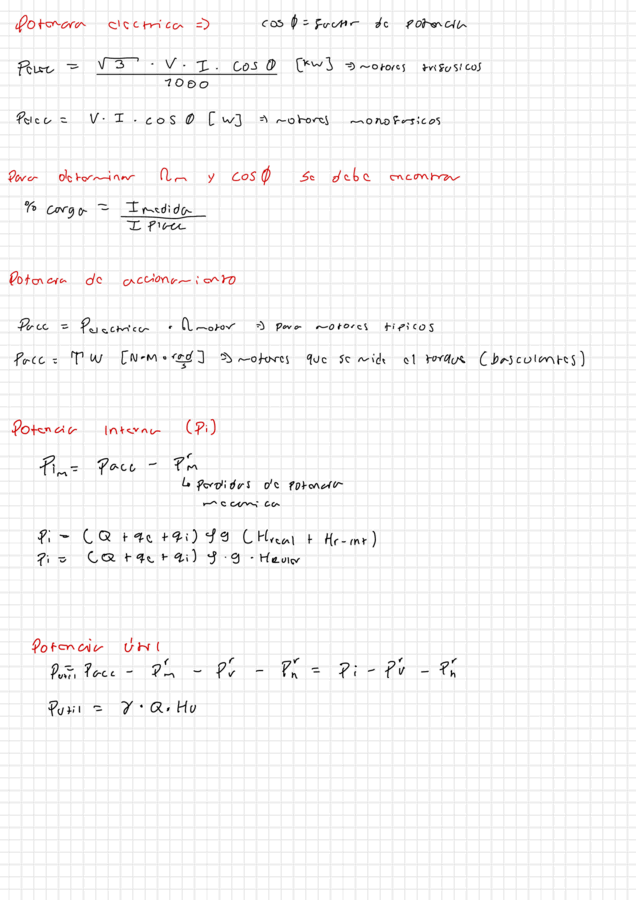 Potencia electrica => cos ϕ = factor de potencia
Pelec = √3 · V · I · cos ϕ / 1000 [kW] => motores trifasicos
Pelec = V · I · cos ϕ [W] => motores monofasicos
Para determinar ηm y cos ϕ se debe encontrar
% carga = I medida / I placa
Potencia de accionamiento
Pacc = Pelectrica · ηmotor => para motores tipicos
Pacc = T W [N·M·rad/s] => motores que se mide el torque (basculantes)
Potencia Interna (Pi)
Pim = Pacc - Pʳm
↳ perdidas de potencia
mecanica
Pi = (Q + qe + qi) ρ g (Hreal + Hr-int)
Pi = (Q + qe + qi) ρ · g · Heuler
Potencia Útil
Putil = Pacc - Pʳm - Pʳv - Pʳh = Pi - Pʳv - Pʳh
Putil = γ · Q · Hu